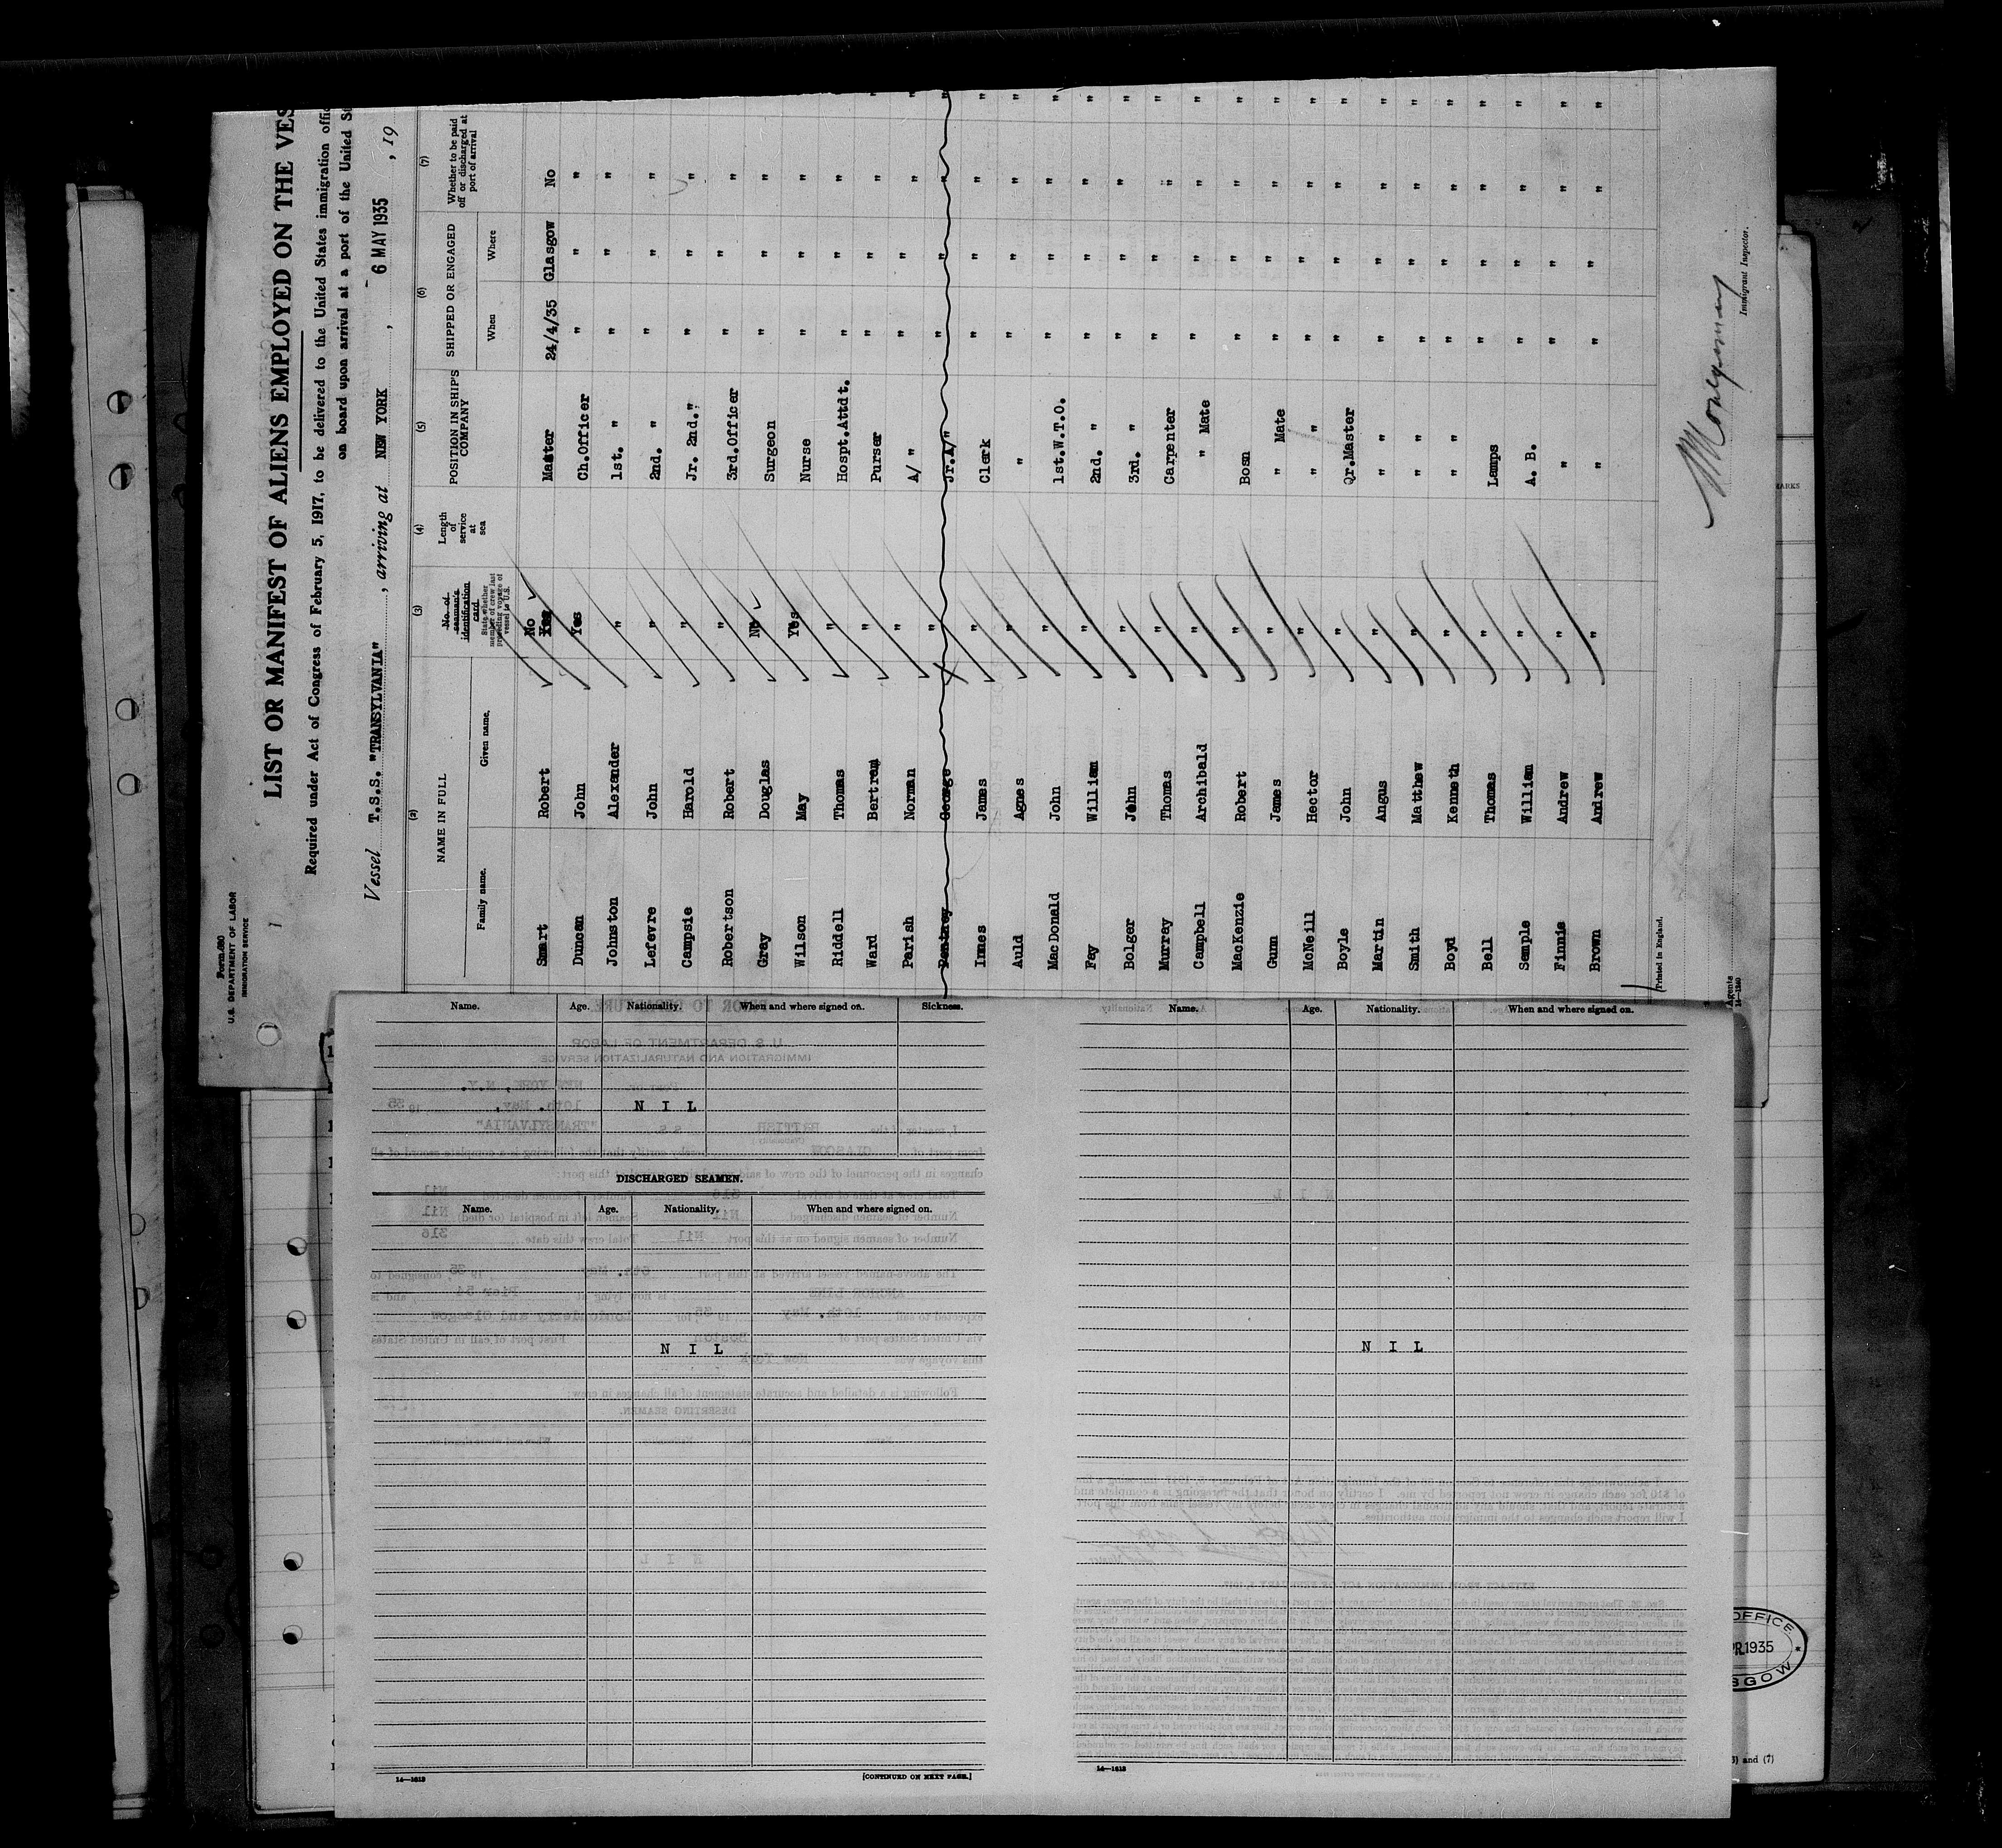 Form 680
U.S. DEPARTMENT OF LABOR
IMMIGRATION SERVICE
LIST OR MANIFEST OF ALIENS EMPLOYED ON THE VES
Required under Act of Congress of February 5, 1917, to be delivered to the United States immigration offic
on board upon arrival at a port of the United St
Vessel T.S.S. "TRANSYLVANIA", arriving at NEW YORK, 6 MAY 1935, 19
(2) (3) (4) (5) (6) (7)
NAME IN FULL
Family name. Given name.
No. of seaman's identification card
State whether member of crew last preceding voyage of vessel to U.S.
Length of service at sea
POSITION IN SHIP'S COMPANY
SHIPPED OR ENGAGED
When Where
Whether to be paid off or discharged at port of arrival
Smart Robert No Yes Master 24/4/35 Glasgow No
Duncan John Yes Ch.Officer " " "
Johnston Alexander " 1st. " " " "
Lefevre John " 2nd. " " " "
Campsie Harold " Jr. 2nd. " " " "
Robertson Robert " 3rd.Officer " " "
Gray Douglas No Surgeon " " "
Wilson May Yes Nurse " " "
Riddell Thomas " Hospt.Attdt. " " "
Ward Bertram " Purser " " " "
Parish Norman " A/ " " " " "
Pentney George " Jr.A/" " " " "
Innes James " Clerk " " " "
Auld Agnes " " " " " "
MacDonald John " 1st.W.T.O. " " " "
Fay William " 2nd. " " " " "
Bolger John " 3rd. " " " " "
Murray Thomas " Carpenter " " " "
Campbell Archibald " " Mate " " " "
MacKenzie Robert " Bosn " " " "
Gunn James " " Mate " " " "
McNeill Hector " " " " " " "
Boyle John " Qr.Master " " " "
Martin Angus " " " " " " "
Smith Matthew " " " " " " "
Boyd Kenneth " " " " " " "
Bell Thomas " Lamps " " " "
Semple William " A. B. " " " "
Finnie Andrew " " " " " "
Brown Andrew " " " " " "
Printed in England.
Agents
Immigrant Inspector.
Name. Age. Nationality. When and where signed on. Sickness.
N I L
DISCHARGED SEAMEN.
Name. Age. Nationality. When and where signed on.
N I L
14—1613
[CONTINUED ON NEXT PAGE.]
Name. Age. Nationality. When and where signed on.
N I L
14—1613
ARKS
OFFICE
PR.1935
SGOW
) and (7)